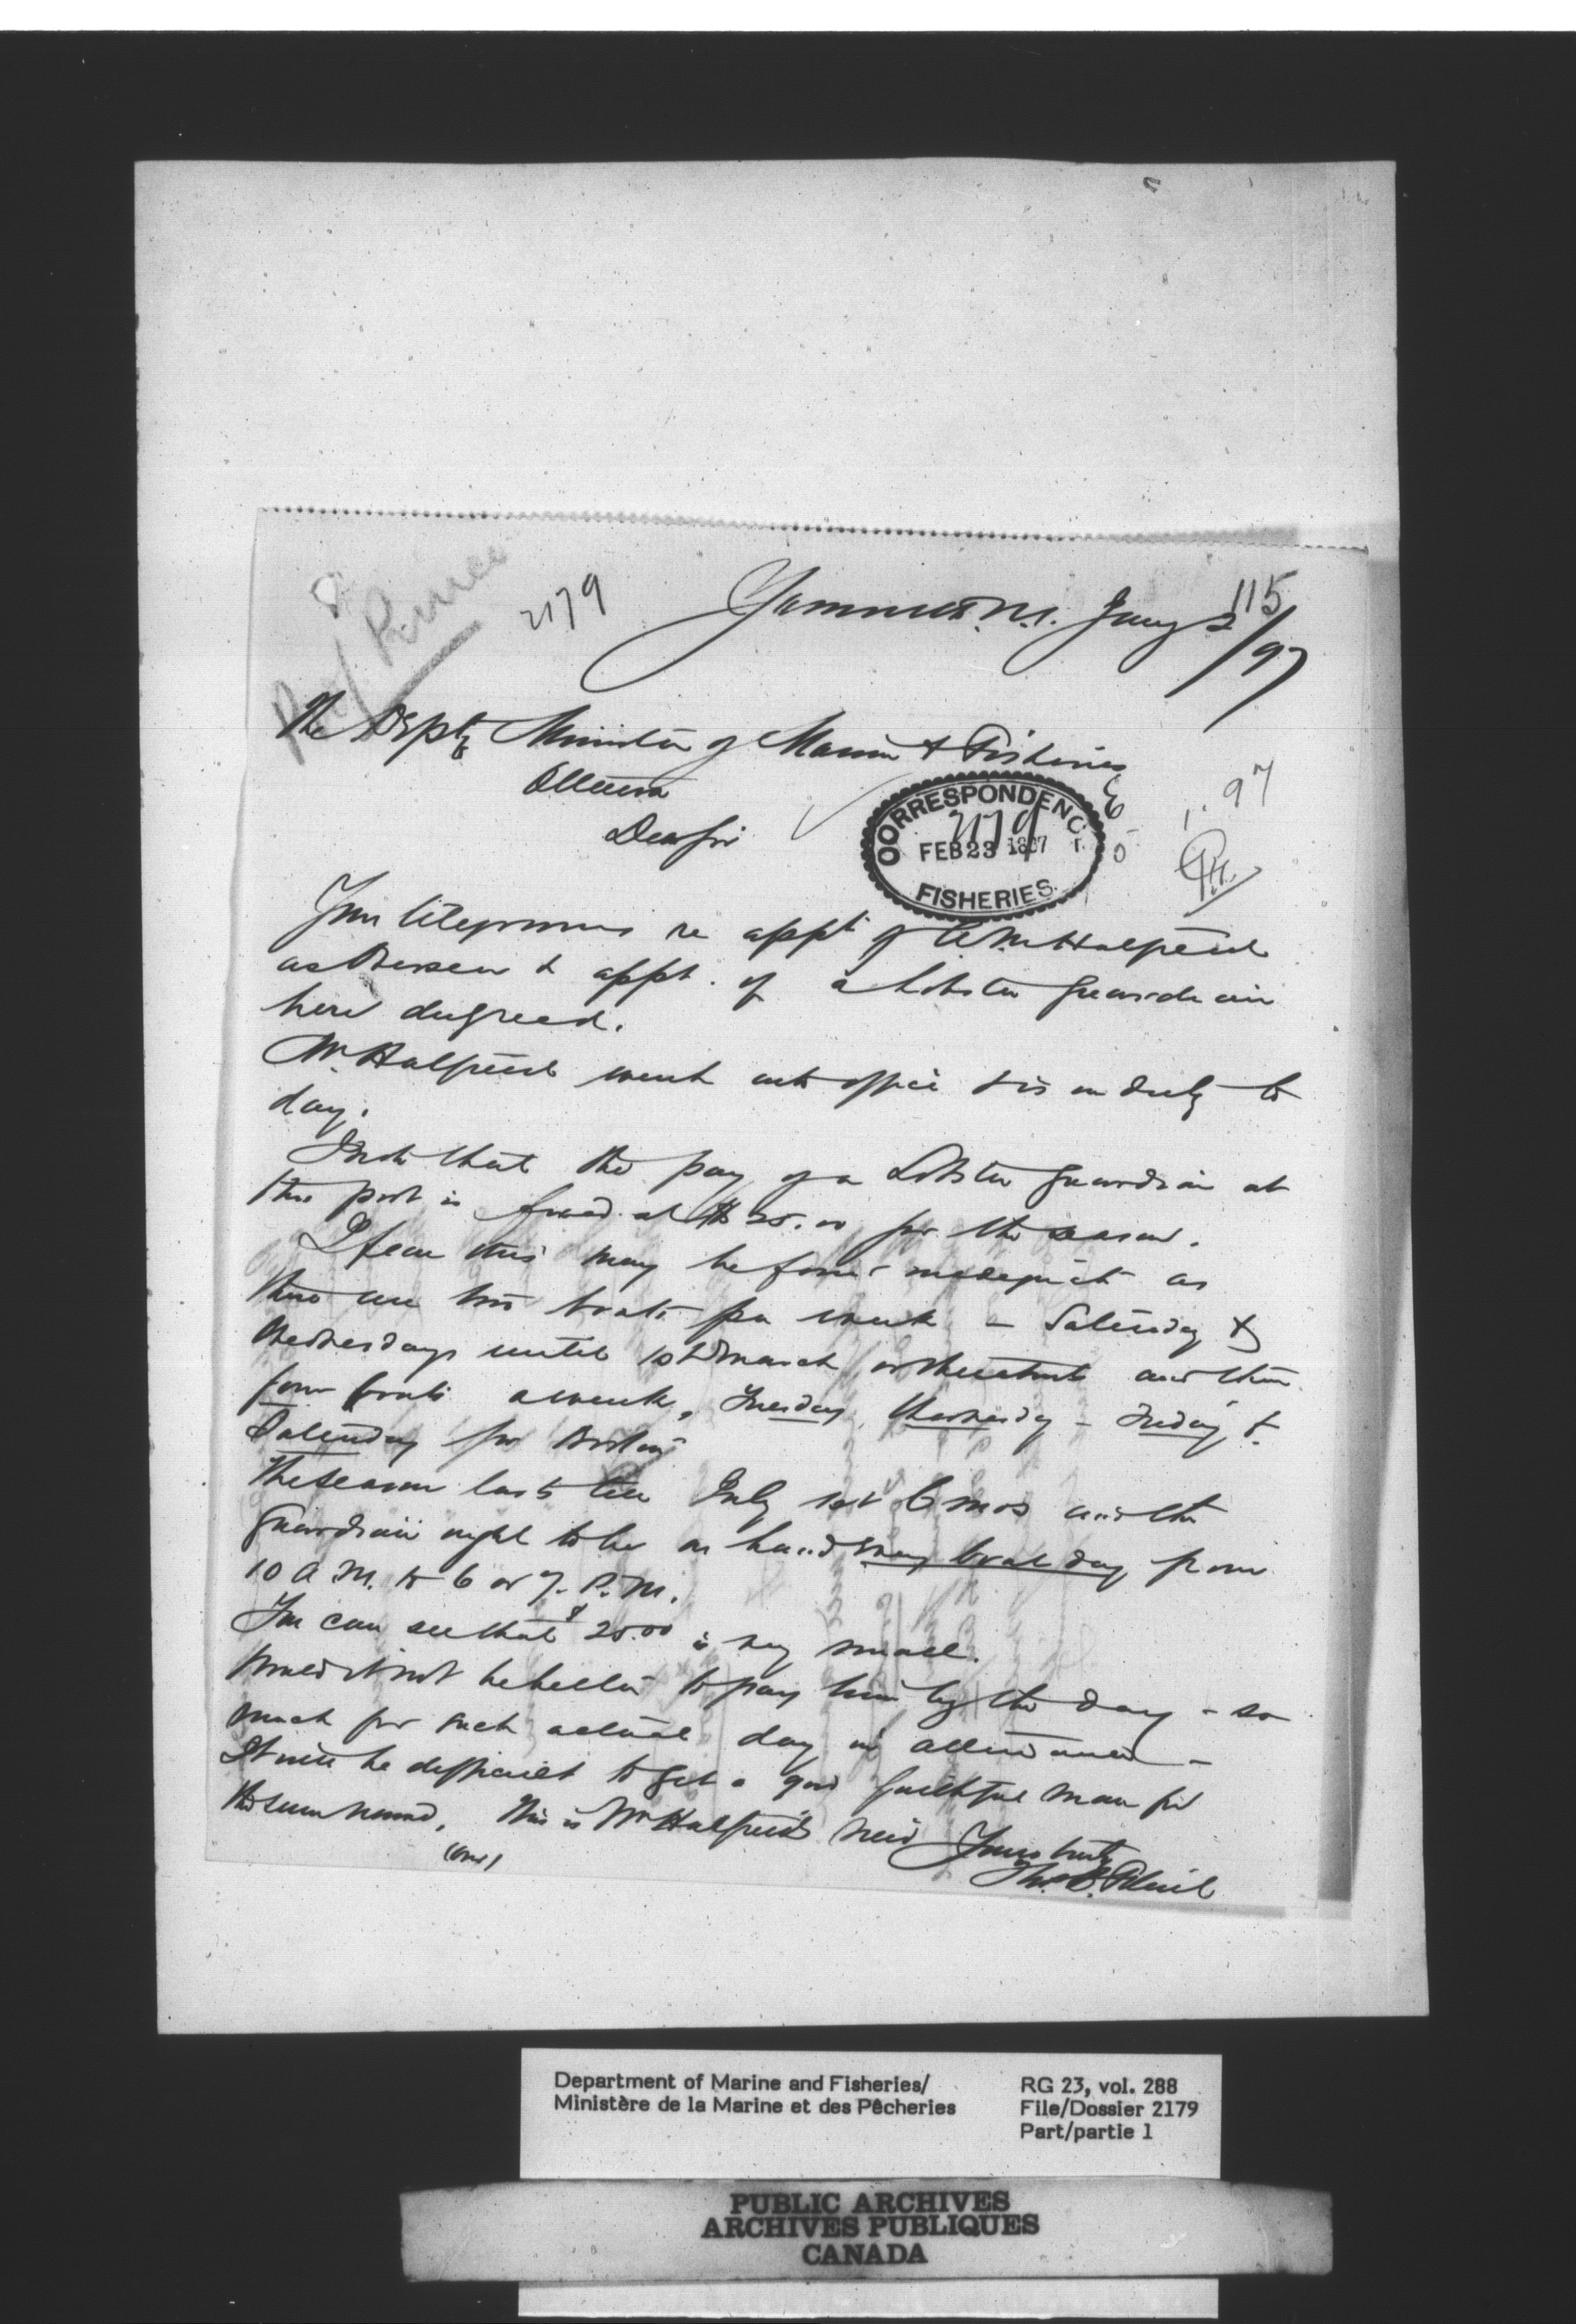 115
2179
Yarmouth N.S. Jany 2/97
Prof Prince
The Depty Minister of Marine & Fisheries
Ottawa
Dear Sir
CORRESPONDENCE
2179
FEB 23 1897
FISHERIES
97
Your telegrams re appt of A. M. Hatfield
as Overseer & appt. of a Lobster Guardian
here duly read.
Mr Hatfield went into office & is on duty to
day.
I note that the pay of a Lobster Guardian at
this port is fixed at $25.00 for the season.
I fear this may be found inadequate as
there are two boats per week - Saturday &
Wednesdays until 1st March or thereabouts and then
four boats a week, Tuesday, Wednesday - Friday &
Saturday for Boston
The season lasts till July 1st 6 mos and the
Guardian ought to be on hand every boat day from
10 A.M. to 6 or 7. P.M.
You can see that $25.00 is very small.
Would it not be better to pay him by the day - so
much for each actual day in attendance -
It will be difficult to get a good faithful man for
the sum named. This is Mr Hatfield's view
Yours truly
(over)
Department of Marine and Fisheries/
Ministère de la Marine et des Pêcheries
RG 23, vol. 288
File/Dossier 2179
Part/partie 1
PUBLIC ARCHIVES
ARCHIVES PUBLIQUES
CANADA